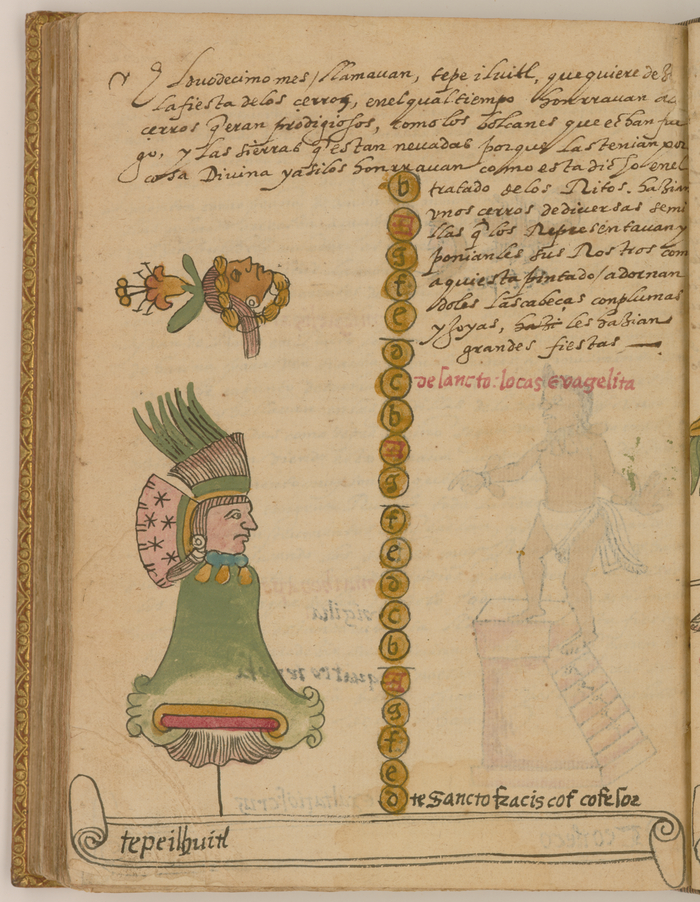 El duodecimo mes / llamavan, tepe iluitl, que quiere de
la fiesta de los cerros, en el qual tiempo honrravan
cerros q̃ eran prodigiosos, como los bolcanes que echan fue
go, y las sierras q̃ estan nevadas porque las tenian por
cosa Divina y asi los honrravan como esta dicho en el
tratado de los Ritos. hazian
vnos cerros de diversas semi
llas q̃ los Representavan y
ponianles sus Rostros com
aqui esta pintado / adornan
doles las cabeças con plumas
y Joyas, les hazian
grandes fiestas
b
A
g
f
e
d
c
de sancto: locas evagelita
b
A
g
f
e
d
c
b
A
g
f
e
d
te Sancto fracis cof cofesor
tepeilhuitl